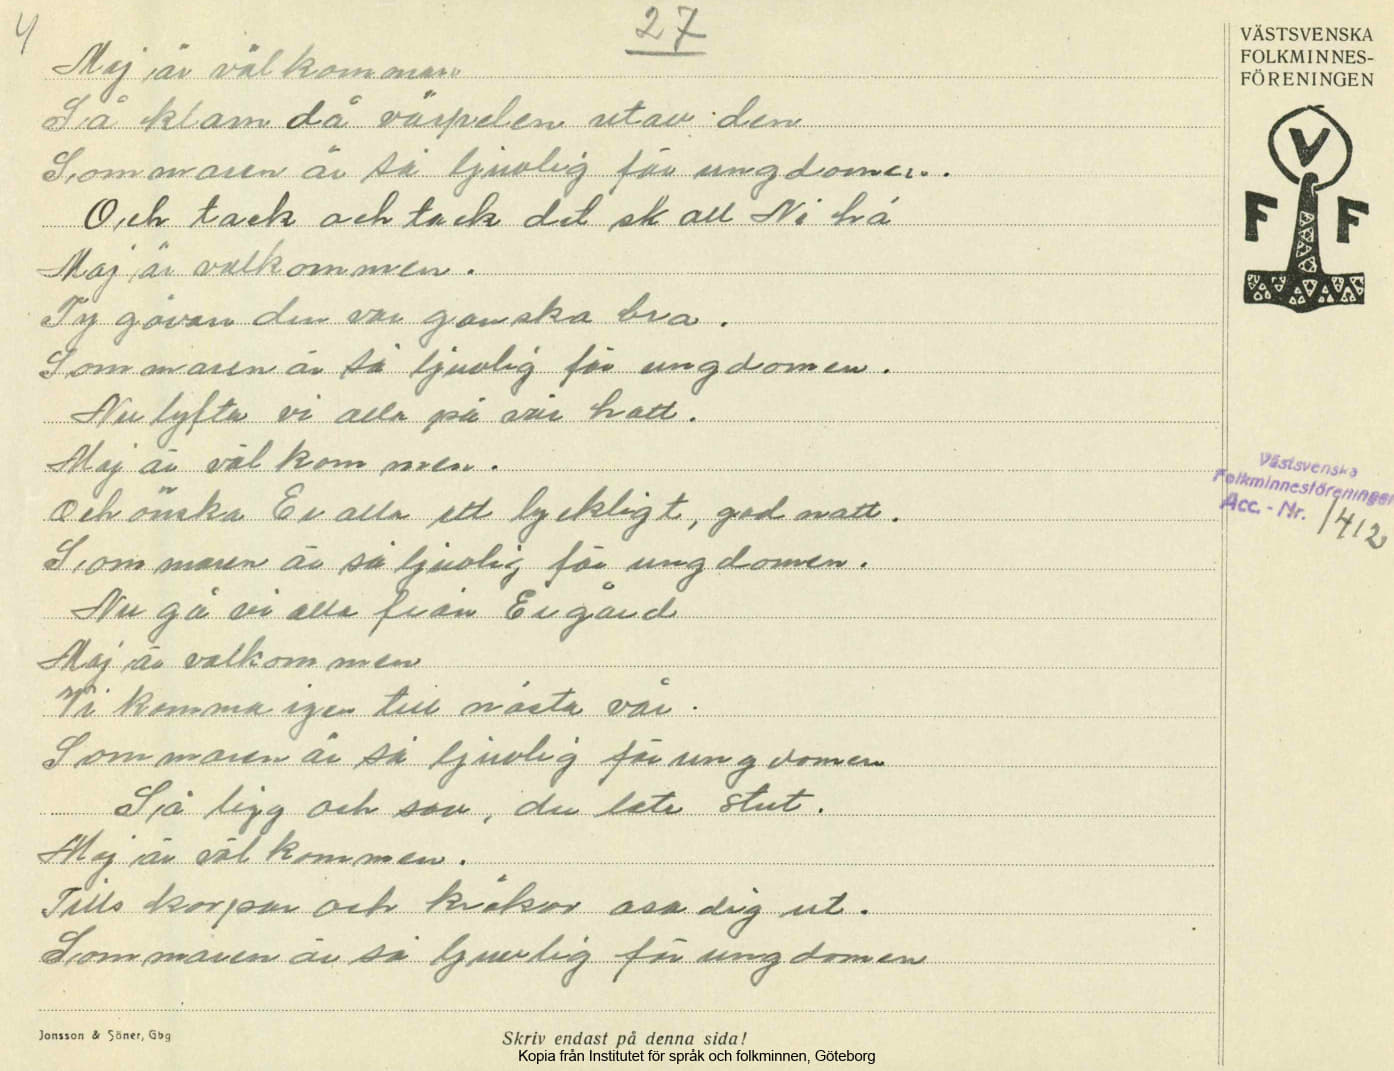 4
27
VÄSTSVENSKA
FOLKMINNES-
FÖRENINGEN
V
F F
Maj är välkommen
Så klam då värpelen utav den
Sommaren är så ljuvlig för ungdomen.
Och tack och tack det skall Ni há
Maj är välkommen.
Ty gåvan den var ganska bra.
Sommaren är så ljuvlig för ungdomen.
Nu lyfta vi alla på vår hatt.
Maj är välkommen.
Och önska Er alla ett lyckligt, god natt.
Sommaren är så ljuvlig för ungdomen.
Nu gå vi alla från Er gård
Maj är välkommen
Vi komma igen till nästa vår.
Sommaren är så ljuvlig för ungdomen
Så ligg och sov, du late stut.
Maj är välkommen.
Tills korpar och kråkor asa dig ut.
Sommaren är så ljuvlig för ungdomen
Västsvenska
Folkminnesföreningen
Acc. - Nr. 1412
Jonsson & Söner, Gbg
Skriv endast på denna sida!
Kopia från Institutet för språk och folkminnen, Göteborg